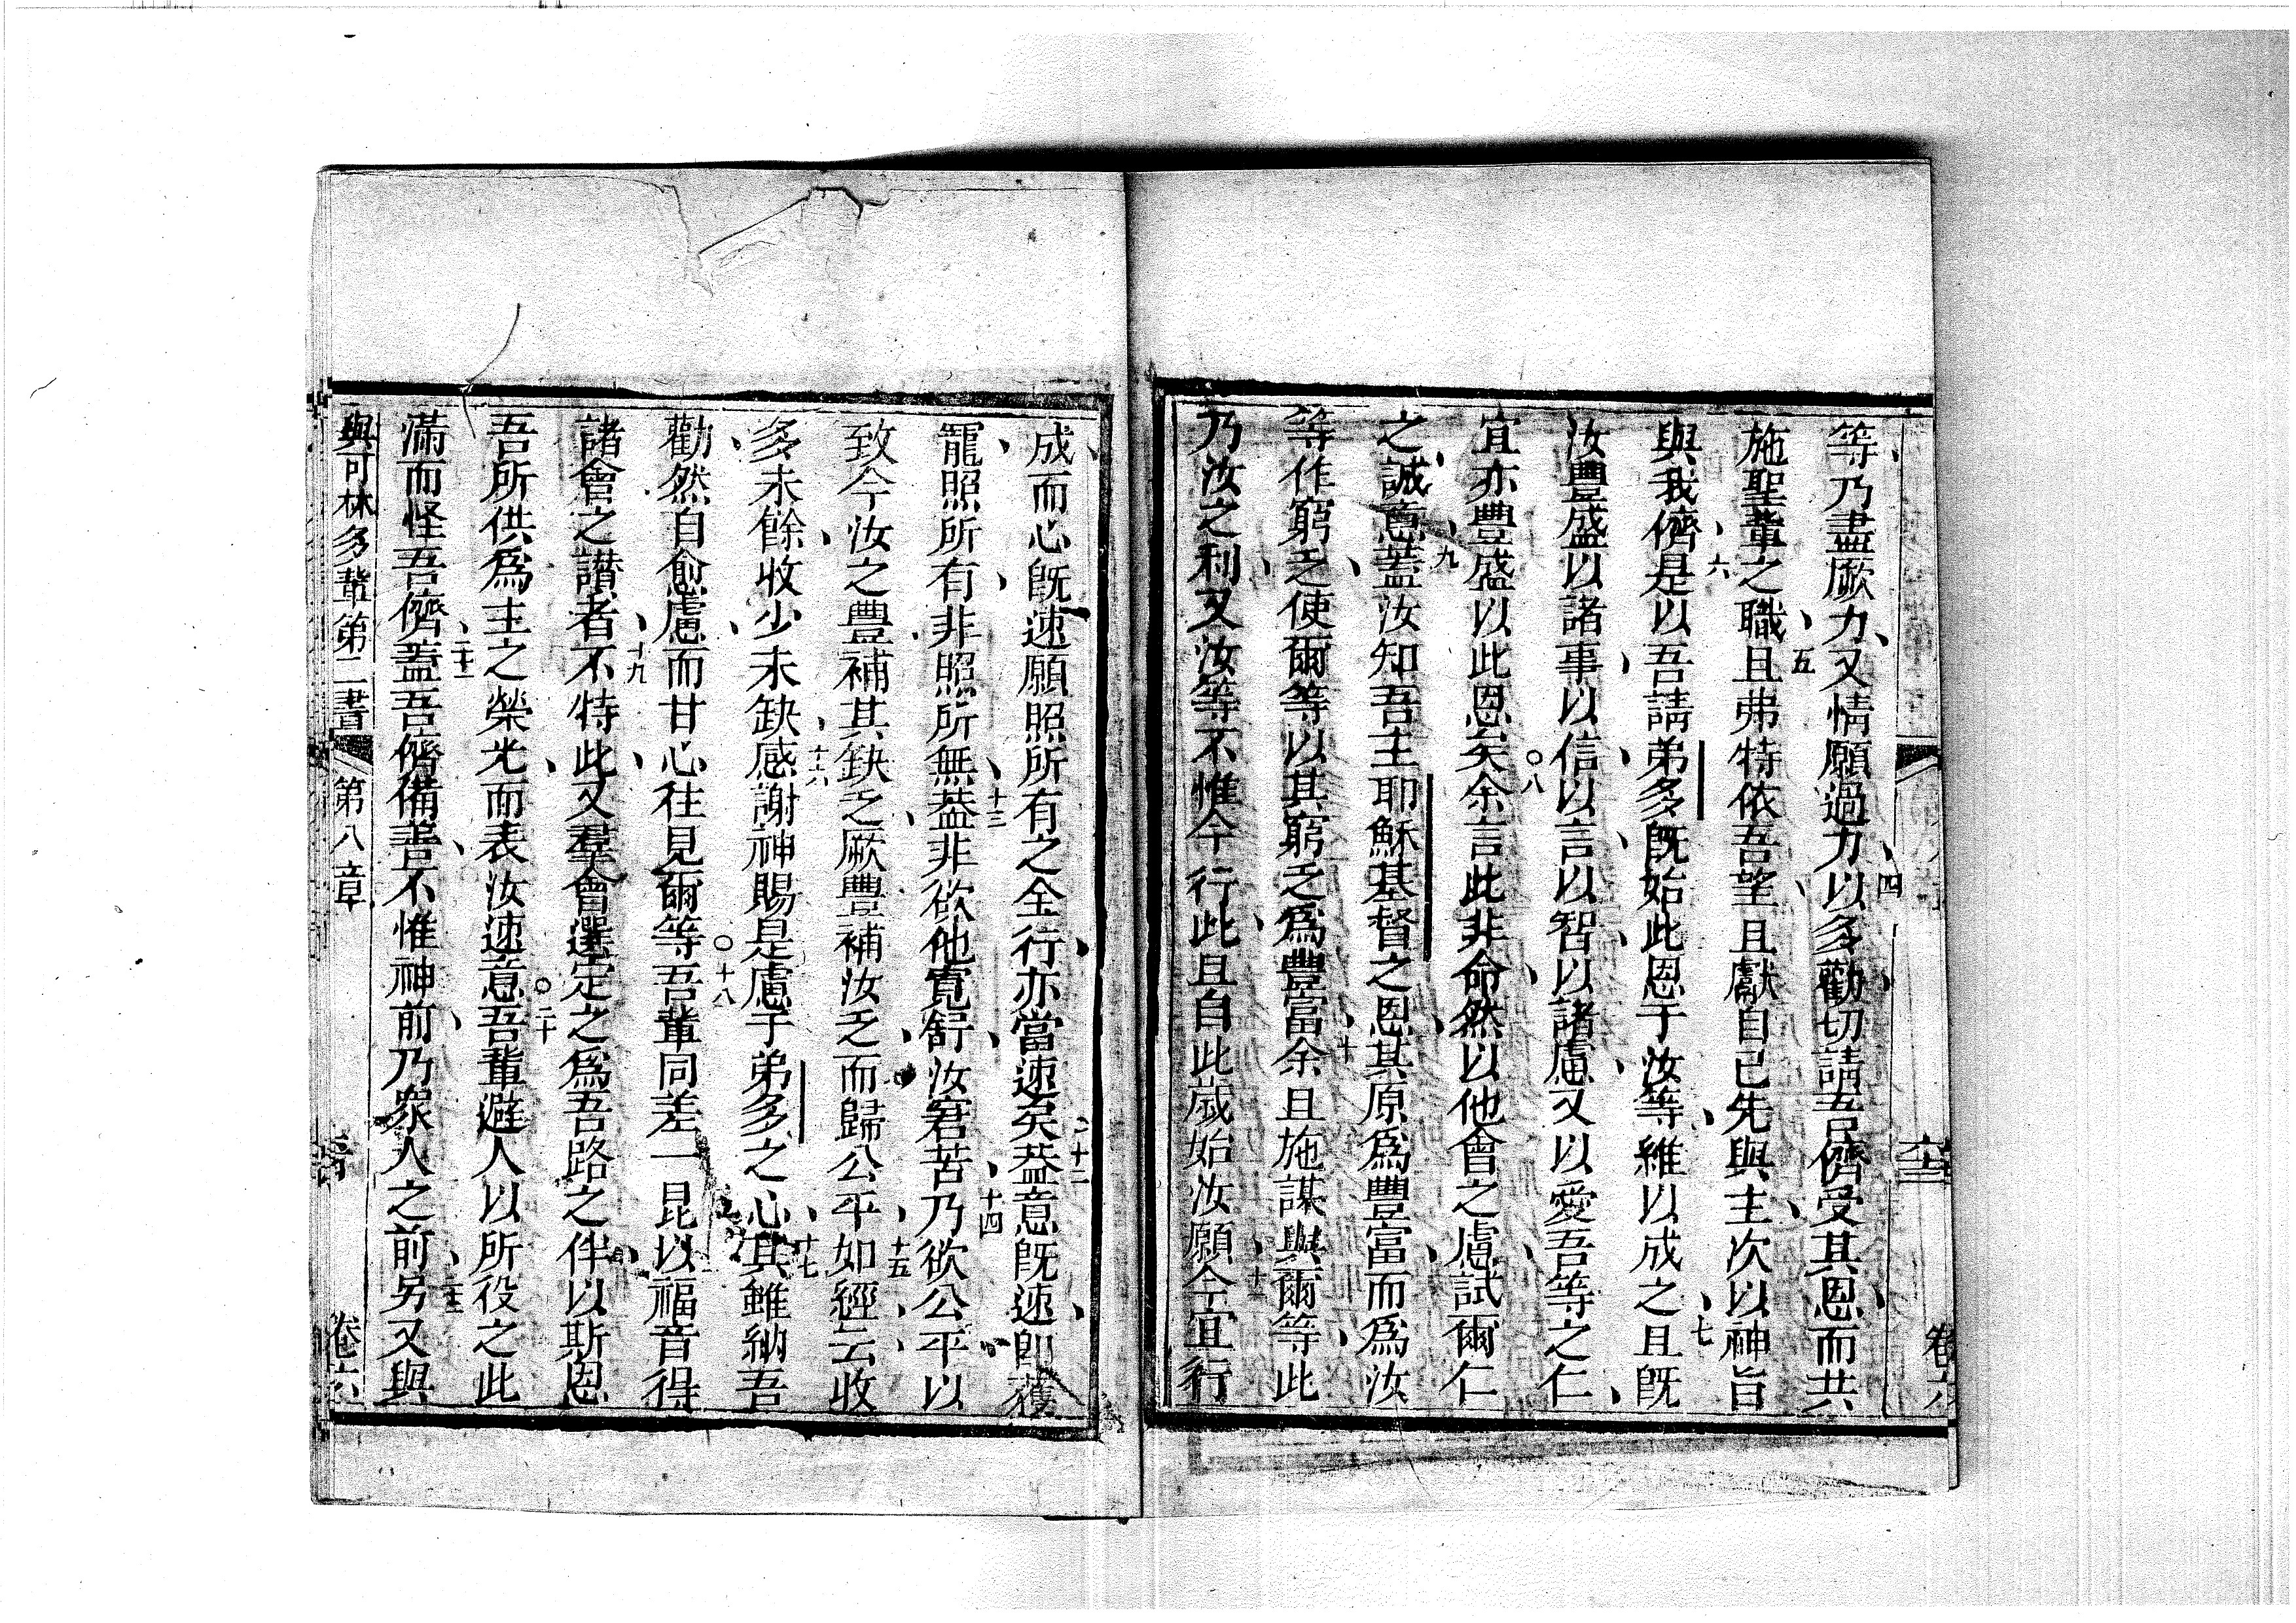 等乃盡厥力又情願過力以多勸切請吾儕受其恩而共
施聖輩之職且弗特依吾望且獻自己先與主次以神旨
與我儕是以吾請弟多既始此恩于汝等維以成之且既
汝豐盛以諸事以信以言以智以諸慮又以愛吾等之仁
宜亦豐盛以此恩矣余言此非命然以他會之慮試爾仁
之誠意蓋汝知吾主耶穌基督之恩其原為豐富而為汝
等作窮乏使爾等以其窮乏為豐富余且施謀與爾等此
乃汝之利又汝等不惟今行此且自此歲始汝願今宜行
成而心既速願照所有之全行亦當速矣蓋意既速即獲
寵照所有非照所無蓋非欲他寬舒汝窘苦乃欲公平以
致今汝之豐補其缺乏厥豐補汝乏而歸公平如經云收
多未餘收少未缺感謝神賜是慮于弟多之心其雖納吾
勸然自愈慮而甘心往見爾等吾輩同差一昆以福音得
諸會之讃者不特此又羣會選定之為吾路之伴以斯恩
吾所供為主之榮光而表汝速意吾輩避人以所役之此
滿而怪吾儕蓋吾儕備善不惟神前乃眾人之前另又與
與可林多輩第二書 第八章 卷六
四
五
六
七
八
九
十
十一
十二
十三
十四
十五
十六
十七
十八
十九
二十
二十一
二十二